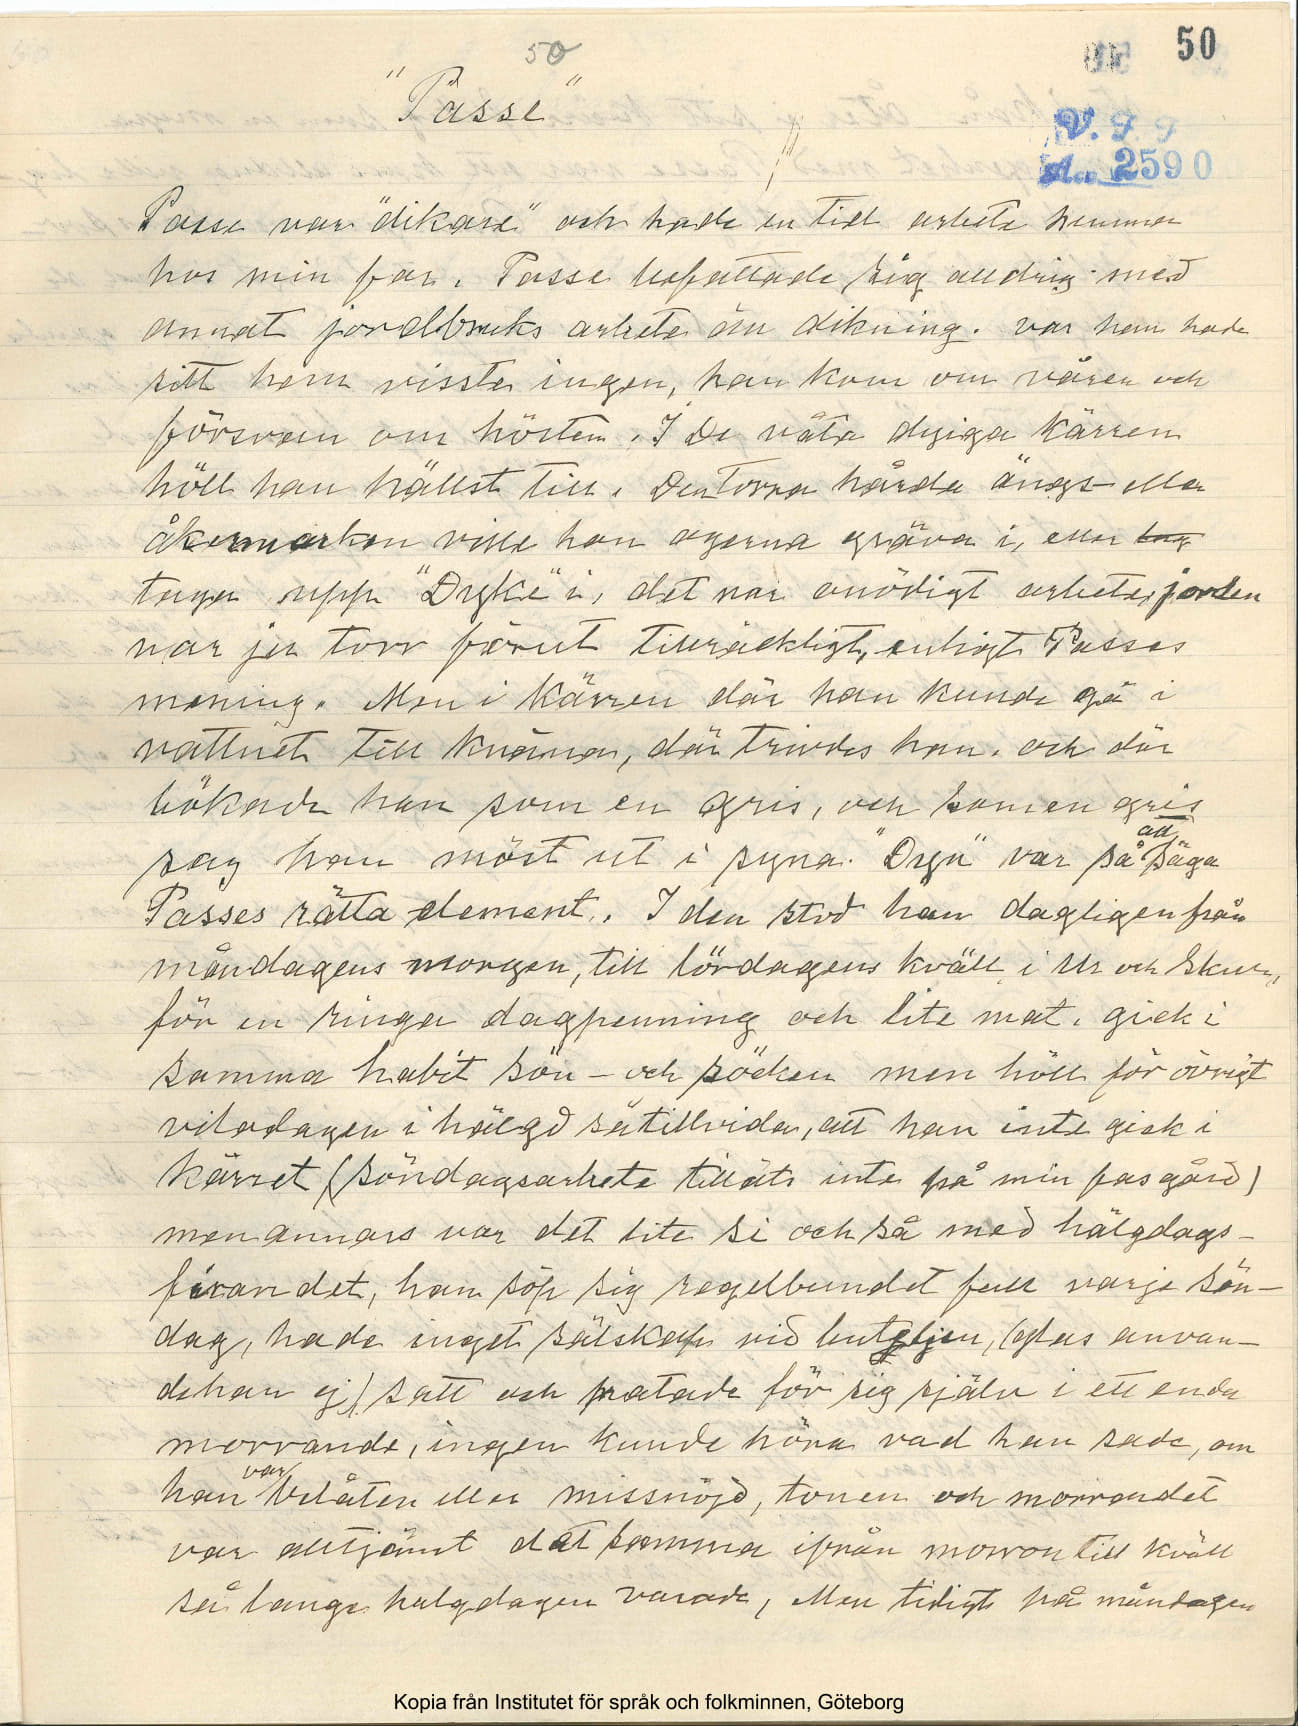 50
50
"Passe"
V. F. F
Acc 2590
Passe var "dikare" och hade en tid arbete hemma
hos min far. Passe befattade sig alldrig med
annat jordbruks arbete än dikning. var han hade
sitt hem visste ingen, han kom om våren och
försvan om hösten. I De våta dyiga kärren
höll han hällst till. Den torra hårda ängs- eller
åkermarken ville han ogerna gräva i, eller
taga upp "Dyke" i, det var onödigt arbete, jorden
var ju torr förut tillräckligt, enligt Passes
mening. Men i kärren där han kunde gå i
vattnet till knäna, där trivdes han. och där
bökade han som en gris, och som en gris
såg han mäst ut i syna. "Dyn" var så att säga
Passes rätta element. I den stod han dagligen från
måndagens morgon, till lördagens kväll i Ur och Skur,
för en ringa dagpenning och lite mat. gick i
samma habit sön- och söcken men höll för övrigt
vilodagen i hälgd såtillvida, att han inte gick i
kärret (söndagsarbete tilläts inte på min fasgård)
men annars var det lite si och så med hälgdags-
firandet, han söp sig regelbundet full varje sön-
dag, hade inget sälskap vid buteljen, (glas anvan-
de han ej) satt och pratade för sig själv i ett enda
morrande, ingen kunde höra vad han sade, om
han var belåten eller missnöjd, tonen och morrandet
var alltjämt dat samma ifrån morron till kväll
så länge helgdagen varade, Men tidigt på måndagen
Kopia från Institutet för språk och folkminnen, Göteborg